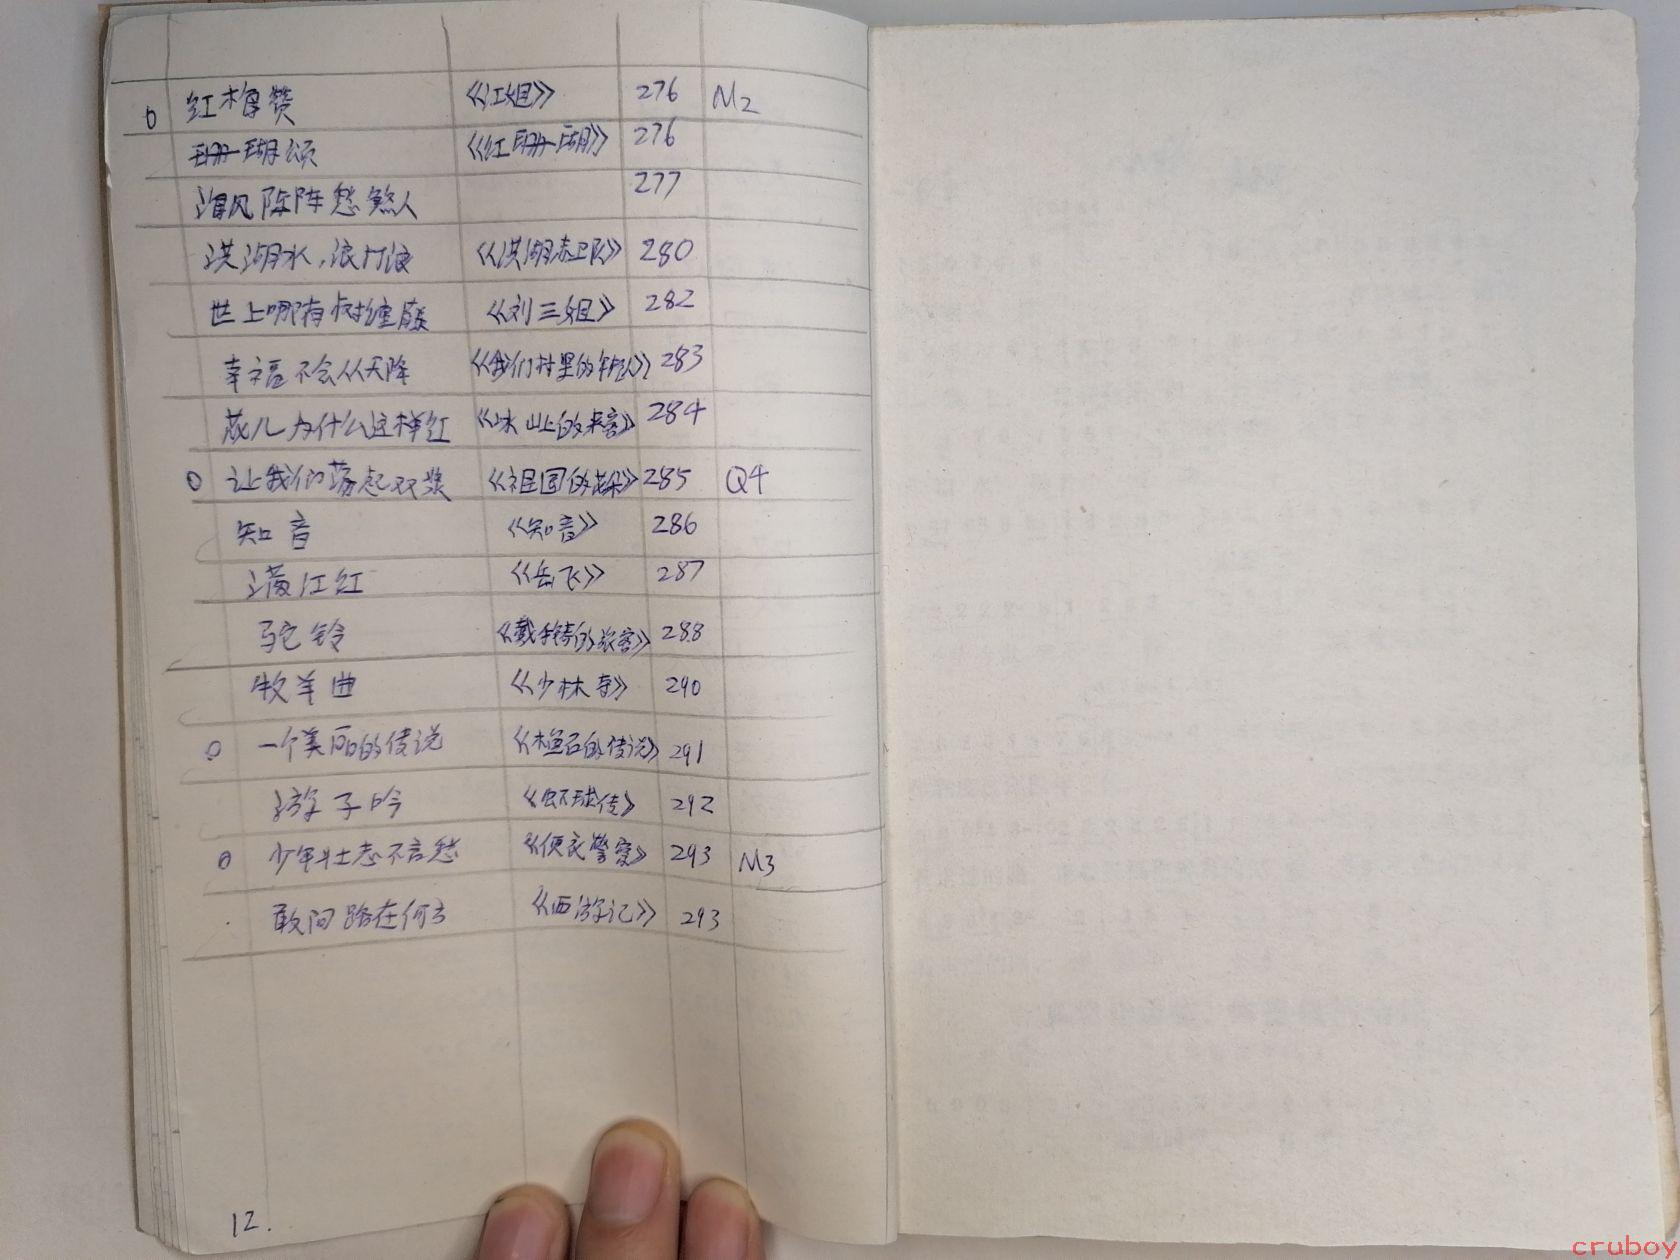 o 红梅赞 《江姐》 276 M2
珊瑚颂 《红珊瑚》 276
海风阵阵愁煞人 277
洪湖水,浪打浪 《洪湖赤卫队》 280
世上哪有树缠藤 《刘三姐》 282
幸福不会从天降 《我们村里的年轻人》 283
花儿为什么这样红 《冰山上的来客》 284
o 让我们荡起双桨 《祖国的花朵》 285 Q4
知音 《知音》 286
满江红 《岳飞》 287
驼铃 《戴手铐的旅客》 288
牧羊曲 《少林寺》 290
o 一个美丽的传说 《木鱼石的传说》 291
游子吟 《虾球传》 292
o 少年壮志不言愁 《便衣警察》 293 M3
敢问路在何方 《西游记》 293
12.
cruboy